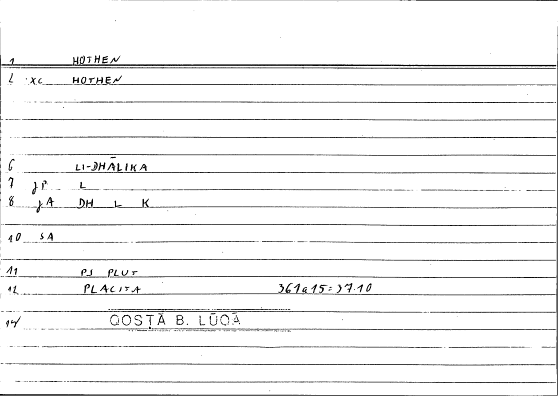 1 HOTHEN
2 xc HOTHEN
6 LI-DHĀLIKA
7 jP L
8 jA DH L K
10 SA
11 PS PLUT
12 PLACITA 361a15 = 37.10
14 QOSṬĀ B. LŪQĀ